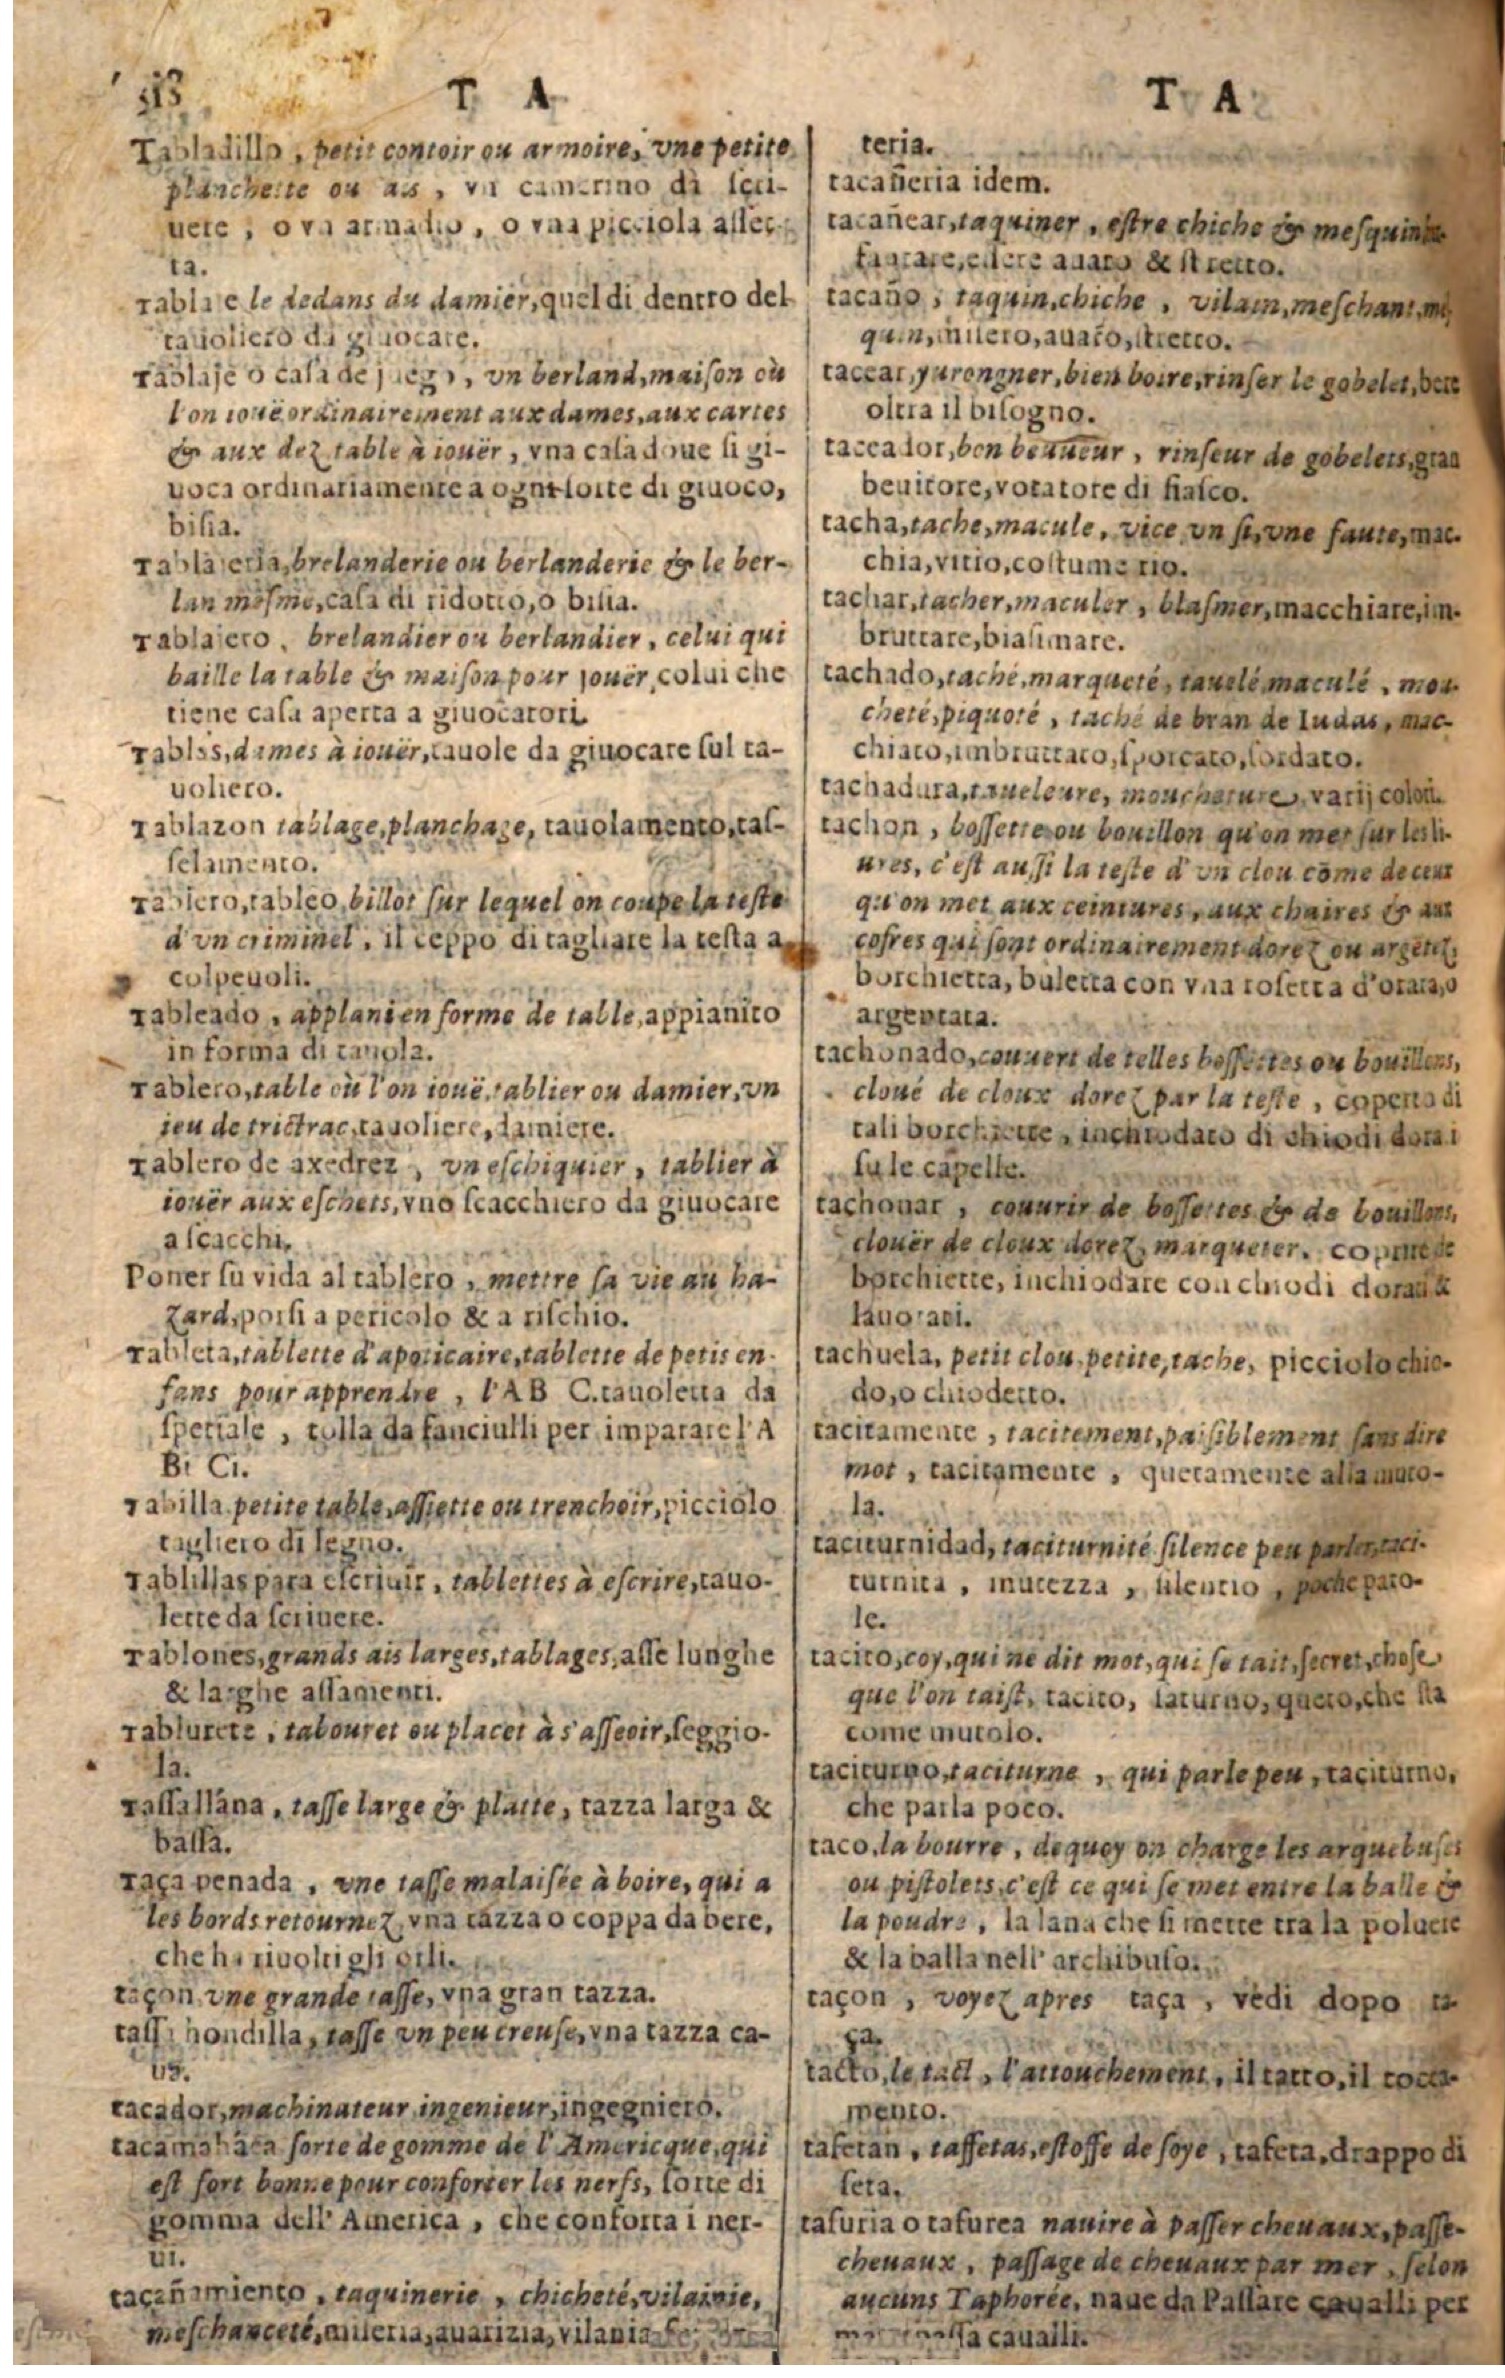 518
T A
Tabladillo, petit contoir ou armoire, vne petite
planchette ou ais, vn camerino da scri-
uere, o vn armadio, o vna picciola asset-
ta.
Tablaje le dedans du damier, quel di dentro del
tauoliero da giuocare.
Tablaje o casa de juego, vn berland, maison où
l'on iouë ordinairement aux dames, aux cartes
& aux dez table à iouër, vna casa doue si gi-
uoca ordinariamente a ogni sorte di giuoco,
bisia.
Tablajeria, brelanderie ou berlanderie & le ber-
lan mesme, casa di ridotto, o bisia.
Tablajero, brelandier ou berlandier, celui qui
baille la table & maison pour jouër, colui che
tiene casa aperta a giuocatori.
Tablas, dames à iouër, tauole da giuocare sul ta-
uoliero.
Tablazon tablage, planchage, tauolamento, tas-
selamento.
Tablero, tableo, billot sur lequel on coupe la teste
d'vn criminel, il ceppo di tagliare la testa a
colpeuoli.
Tableado, applani en forme de table, appianito
in forma di tauola.
Tablero, table où l'on iouë, tablier ou damier, vn
ieu de trictrac, tauoliere, damiere.
Tablero de axedrez, vn eschiquier, tablier à
iouër aux eschets, vno scacchiero da giuocare
a scacchi.
Poner su vida al tablero, mettre sa vie au ha-
zard, porsi a pericolo & a rischio.
Tableta, tablette d'apoticaire, tablette de petis en-
fans pour apprendre, l'A B C. tauoletta da
spetiale, tolla da fanciulli per imparare l'A
Bi Ci.
Tabilla petite table, assiette ou trenchoir, picciolo
tagliero di legno.
Tablillas para escriuir, tablettes à escrire, tauo-
lette da scriuere.
Tablones, grands ais larges, tablages, asse lunghe
& larghe assamenti.
Tablurete, tabouret ou placet à s'asseoir, seggio-
la.
Tassallana, tasse large & platte, tazza larga &
bassa.
Taça penada, vne tasse malaisée à boire, qui a
les bords retournez, vna tazza o coppa da bere,
che ha riuolti gli orli.
taçon vne grande tasse, vna gran tazza.
tassi hondilla, tasse vn peu creuse, vna tazza ca-
ua.
tacador, machinateur ingenieur, ingegniero.
tacamahaca sorte de gomme de l'Americque, qui
est fort bonne pour conforter les nerfs, sorte di
gomma dell'America, che conforta i ner-
ui.
tacañamiento, taquinerie, chicheté, vilainie,
meschanceté, miseria, auarizia, vilania
T A
teria.
tacañeria idem.
tacañear, taquiner, estre chiche & mesquin
essere auaro & stretto.
tacaño, taquin, chiche, vilain, meschant, mes
quin, misero, auaro, stretto.
taccar, yurongner, bien boire, rinser le gobelet, bere
oltra il bisogno.
taccador, bon beuueur, rinseur de gobelets, gran
beuitore, votatore di fiasco.
tacha, tache, macule, vice vn si, vne faute, mac-
chia, vitio, costume rio.
tachar, tacher, maculer, blasmer, macchiare, im-
bruttare, biasimare.
tachado, taché, marqueté, tauelé, maculé, mou-
cheté, piquoté, taché de bran de Iudas, mac-
chiato, imbruttato, sporcato, lordato.
tachadura, taueleure, moucheture, varij colori.
tachon, bossette ou bouillon qu'on met sur les li-
ures, c'est aussi la teste d'vn clou cōme de ceux
qu'on met aux ceintures, aux chaires & aux
cofres qui sont ordinairement dorez ou argētez,
borchietta, buletta con vna rosetta d'orata, o
argentata.
tachonado, couuert de telles bossettes ou bouillons,
cloué de cloux dorez par la teste, coperto di
tali borchiette, inchiodato di chiodi dorai
su le capelle.
tachonar, couurir de bossettes & de bouillons,
clouër de cloux dorez, marqueter. coprire de
borchiette, inchiodare con chiodi dorati &
lauorati.
tachuela, petit clou, petite, tache, picciolo chio-
do, o chiodetto.
tacitamente, tacitement, paisiblement sans dire
mot, tacitamente, quetamente alla muto-
la.
taciturnidad, taciturnité silence peu parler, taci-
turnita, mutezza, silentio, poche paro-
le.
tacito, coy, qui ne dit mot, qui se tait, secret, chose
que l'on taist, tacito, saturno, queto, che sta
come mutolo.
taciturno, taciturne, qui parle peu, taciturno,
che parla poco.
taco, la bourre, dequoy on charge les arquebuses
ou pistolets, c'est ce qui se met entre la balle &
la poudre, la lana che si mette tra la poluere
& la balla nell' archibuso.
taçon, voyez apres taça, vedi dopo ta-
ça.
tacto, le tact, l'attouchement, il tatto, il tocca-
mento.
tafetan, taffetas, estoffe de soye, tafeta, drappo di
seta.
tafuria o tafurea nauire à passer cheuaux, passe-
cheuaux, passage de cheuaux par mer, selon
aucuns Taphorée, naue da Passare caualli per
passa caualli.